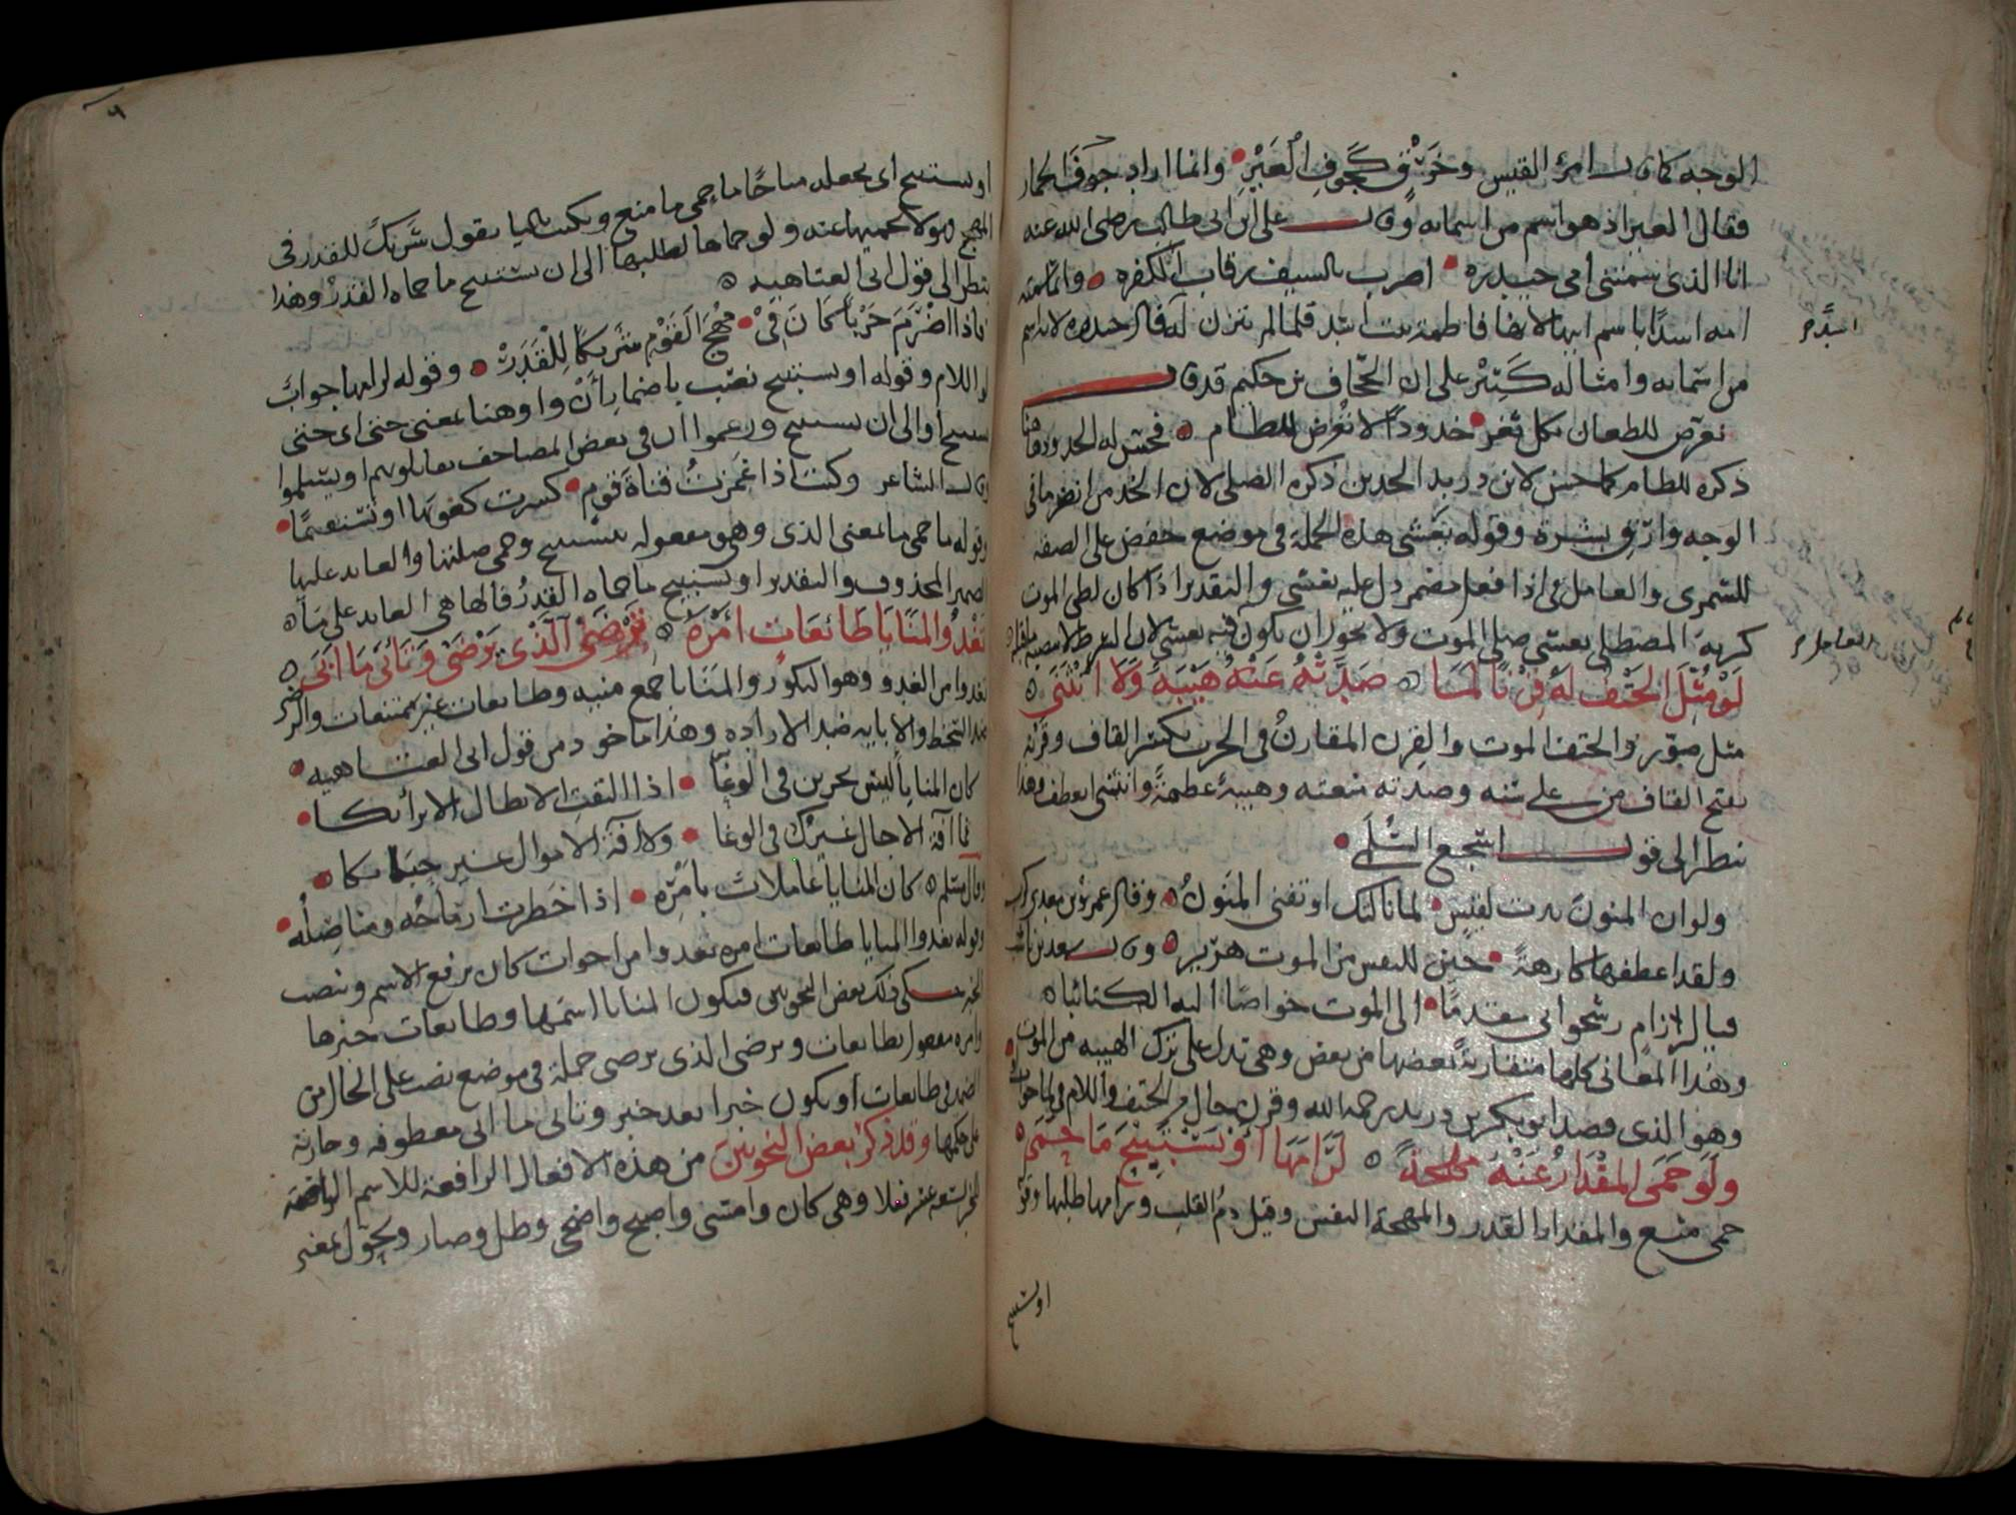 الوجه كما قال امرؤ القيس وخرق كجوف العير وانما اراد جوف الحمار
فقال العير اذ هو اسم من اسمائه وقال علي ابن ابي طالب رضي الله عنه
انا الذي سمتني امي حيدره اضرب بالسيف رقاب الكفره وانما سمته
امه اسدًا باسم ابيها لانها فاطمة بنت اسد فلما لم يتزن له قال حيدره لانه اسم
من اسمائه وامثاله كثير على ان الجحاف بن حكيم قد قال
نعرض للطعان بكل ثغر خدودًا لا تعرض للطام فحسن له الخدود هنا
ذكره للطام كما حسن لابن دريد الخدين ذكره الصلى لان الخد من انضر ما في
الوجه وارق بشرة وقوله يغشى هذه الجملة في موضع خفض على الصفه
للشمري والعامل في اذا فعل مضمر دل عليه يغشى والتقدير اذا كان لظى الموت
كريهة المصطلى يغشى صلى الموت ولا يجوز ان يكون فيه يغشى لان
لو مثل الحتف له قرنًا لما صدته عنه هيبة ولا انثنى
مثل صور والحتف الموت والقرن المقارن في الحرب بكسر القاف وقرنه
بفتح القاف من على سنه وصدته منعته وهيبة عظمة وانثنى انعطف وهذا
ينظر الى قول اشجع السلمي
ولو ان المنون بدت لقيس لما ناكبك او تفنى المنون وقال عمرو بن معدي كرب
ولقد اعطفها كارهة حين للنفس من الموت هرير وقال سعد بن ناشب
فيال رزام رشحوا بي مقدمًا الى الموت خواضًا اليه الكتائبا
وهذا المعاني كلها متقاربة بعضها من بعض وهي تدل على ترك الهيبه من الموت
وهو الذي قصد ابو بكر بن دريد رحمه الله وقرن حال من الحتف واللام في لما جواب لو
ولو حمى المقدار عنه مهجة لرامها او يستبيح ما حمى
حمى منع والمقدار القدر والمهجة النفس وقيل دم القلب ورامها طلبها وقوله
اسد
العامل
او يستبيح
او يستبيح اي يجعله مباحًا ما حمى ما منع ويكتب باليا يقول شريك للقدر في
المهج فهو لا يحميها عنه ولو حماها لطلبها الى ان يستبيح ما حماه القدر وهذا
ينظر الى قول ابي العتاهيه
فاذا اضرم حربًا كان في مهج القوم شريكًا للقدر وقوله لرامها جواب
لو اللام وقوله او يستبيح نصب باضمار أن واو هنا بمعنى حتى اي حتى
يستبيح او الى ان يستبيح وزعموا ان في بعض المصاحف تقاتلونهم او يسلموا
وقال الشاعر وكنت اذا غمزت قناة قوم كسرت كعوبها او تستقيما
وقوله ما حمى ما بمعنى الذي وهي مفعوله يستبيح وحمى صلتها والعايد عليها
الضمير المحذوف والتقدير او يستبيح ما حماه القدر فالها هي العايد على ما
تغدو المنايا طائعات امره ترضى الذي يرضى وتأبى ما أبى
تغدوا من الغدو وهو البكور والمنايا جمع منيه وطايعات غير ممتنعات والرضى
ضد السخط والابايه ضد الاراده وهذا ماخوذ من قول ابي العتاهيه
كان المنايا ليس يجرين في الوغى اذا التقت الابطال الا برائكا
فما آفة الاجال غيرك في الوغا ولا آفة الاموال غير حبائكا
وقال مسلم كان المنايا عاملات بامره اذا خطرت ارماحه ومناضله
وقوله تغدوا المنايا طايعات امره تغدوا من اخوات كان يرفع الاسم وينصب
الخبر حكى ذلك بعض النحويين فيكون المنايا اسمها وطايعات خبرها
وامره مفعول بطايعات وترضى الذي يرضى جملة في موضع نصب على الحال من
الضمير في طايعات او يكون خبرا بعد خبر وتابى ما ابى معطوفه وجارية
على حكمها وقد ذكر بعض النحويين من هذه الافعال الرافعة للاسم الناصبة
للخبر تسعة عشر فعلا وهي كان وامسى واصبح واضحى وظل وصار وتحول بمعنى